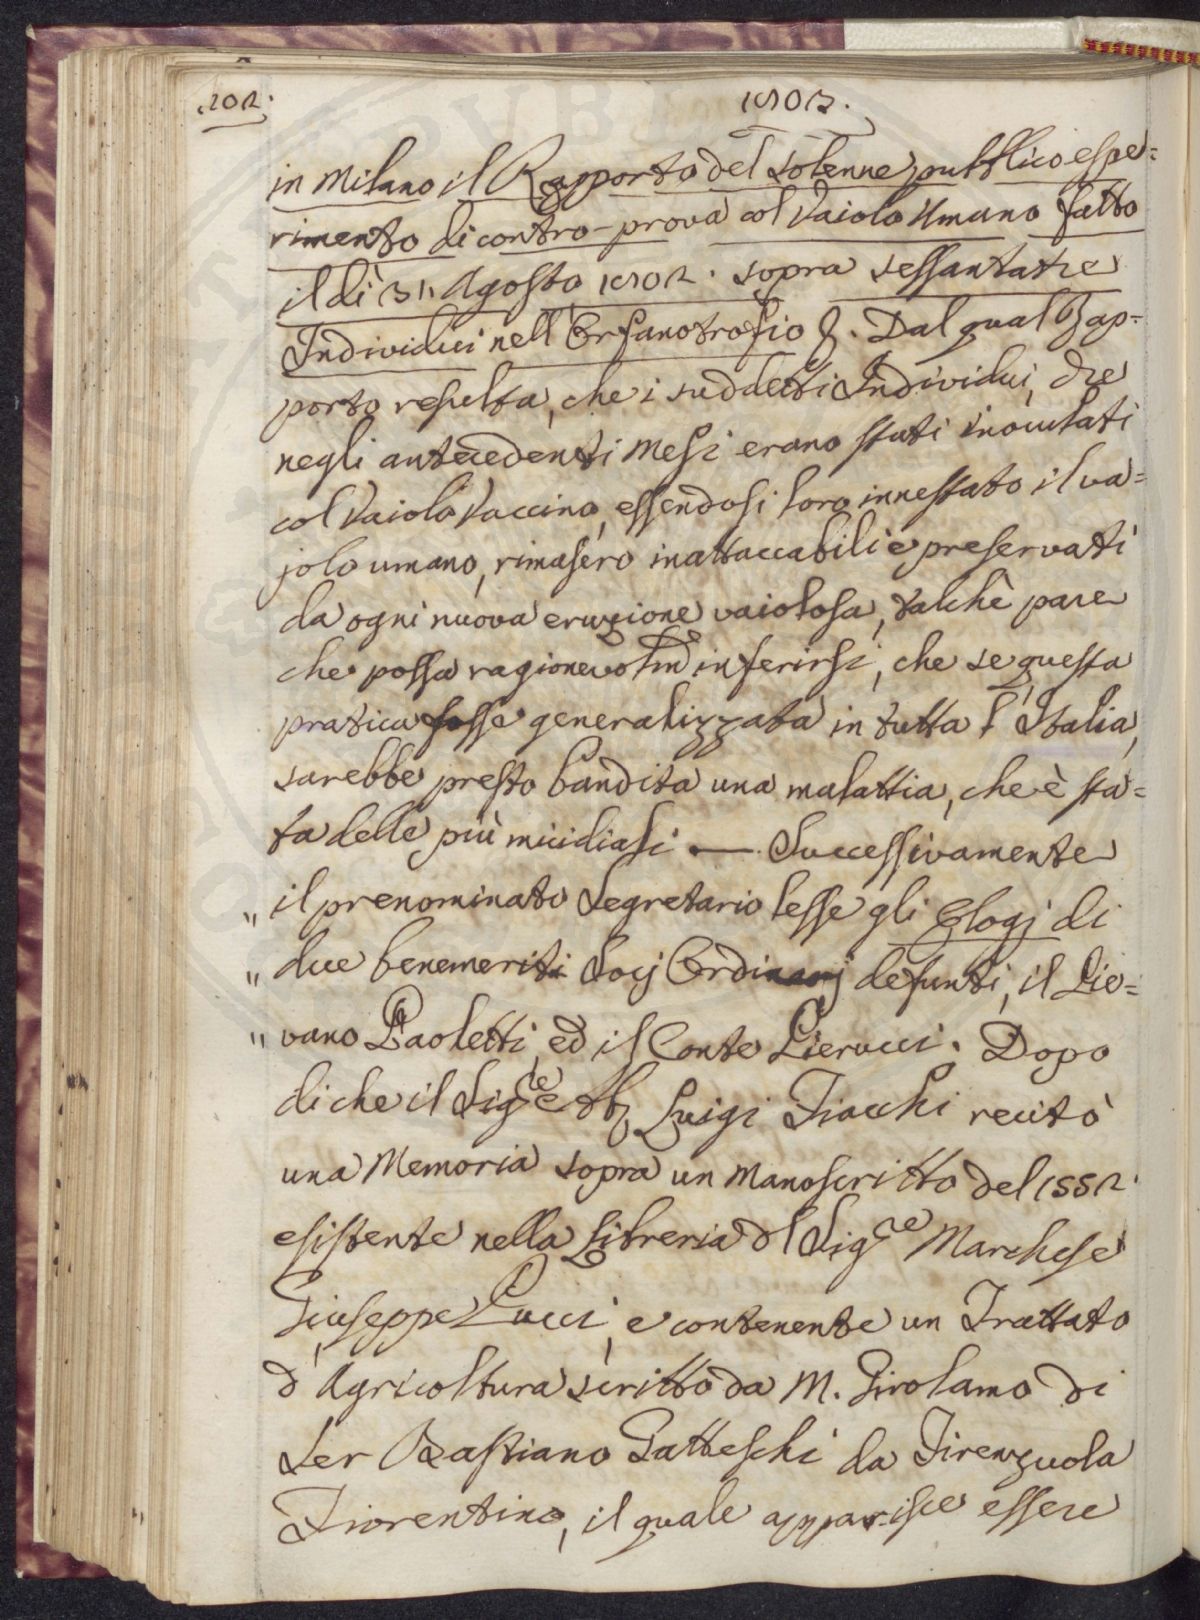 202.
1802.
in Milano il Rapporto del solenne pubblico espe=
rimento di contro-prova col Vaiolo Umano fatto
il dì 31. Agosto 1802. sopra sessantatre
Individui nell' Orfanotrofio &. Dal qual Rap=
porto resulta, che i suddetti Individui, che
negli antecedenti Mesi erano stati inoculati
col Vaiolo Vaccino, essendosi loro innestato il va=
jolo umano, rimasero inattaccabili e preservati
da ogni nuova eruzione vaiolosa, talchè pare
che possa ragionevolm̃ inferirsi, che se questa
pratica fosse generalizzata in tutta l' Italia,
sarebbe presto bandita una malattia, che è sta=
ta delle più micidiali — Successivamente
" il prenominato Segretario lesse gli Elogj di
" due benemeriti Socj Ordinarj defunti, il Pio=
" vano Paoletti, ed il Conte Pierucci. Dopo
di che il Sig.re Ab. Luigi Fiacchi recitò
una Memoria sopra un Manoscritto del 1552.
esistente nella Libreria dl Sig.re Marchese
Giuseppe Pucci, e contenente un Trattato
d' Agricoltura scritto da M. Girolamo di
Ser Bastiano Gatteschi da Firenzuola
Fiorentino, il quale apparisce essere